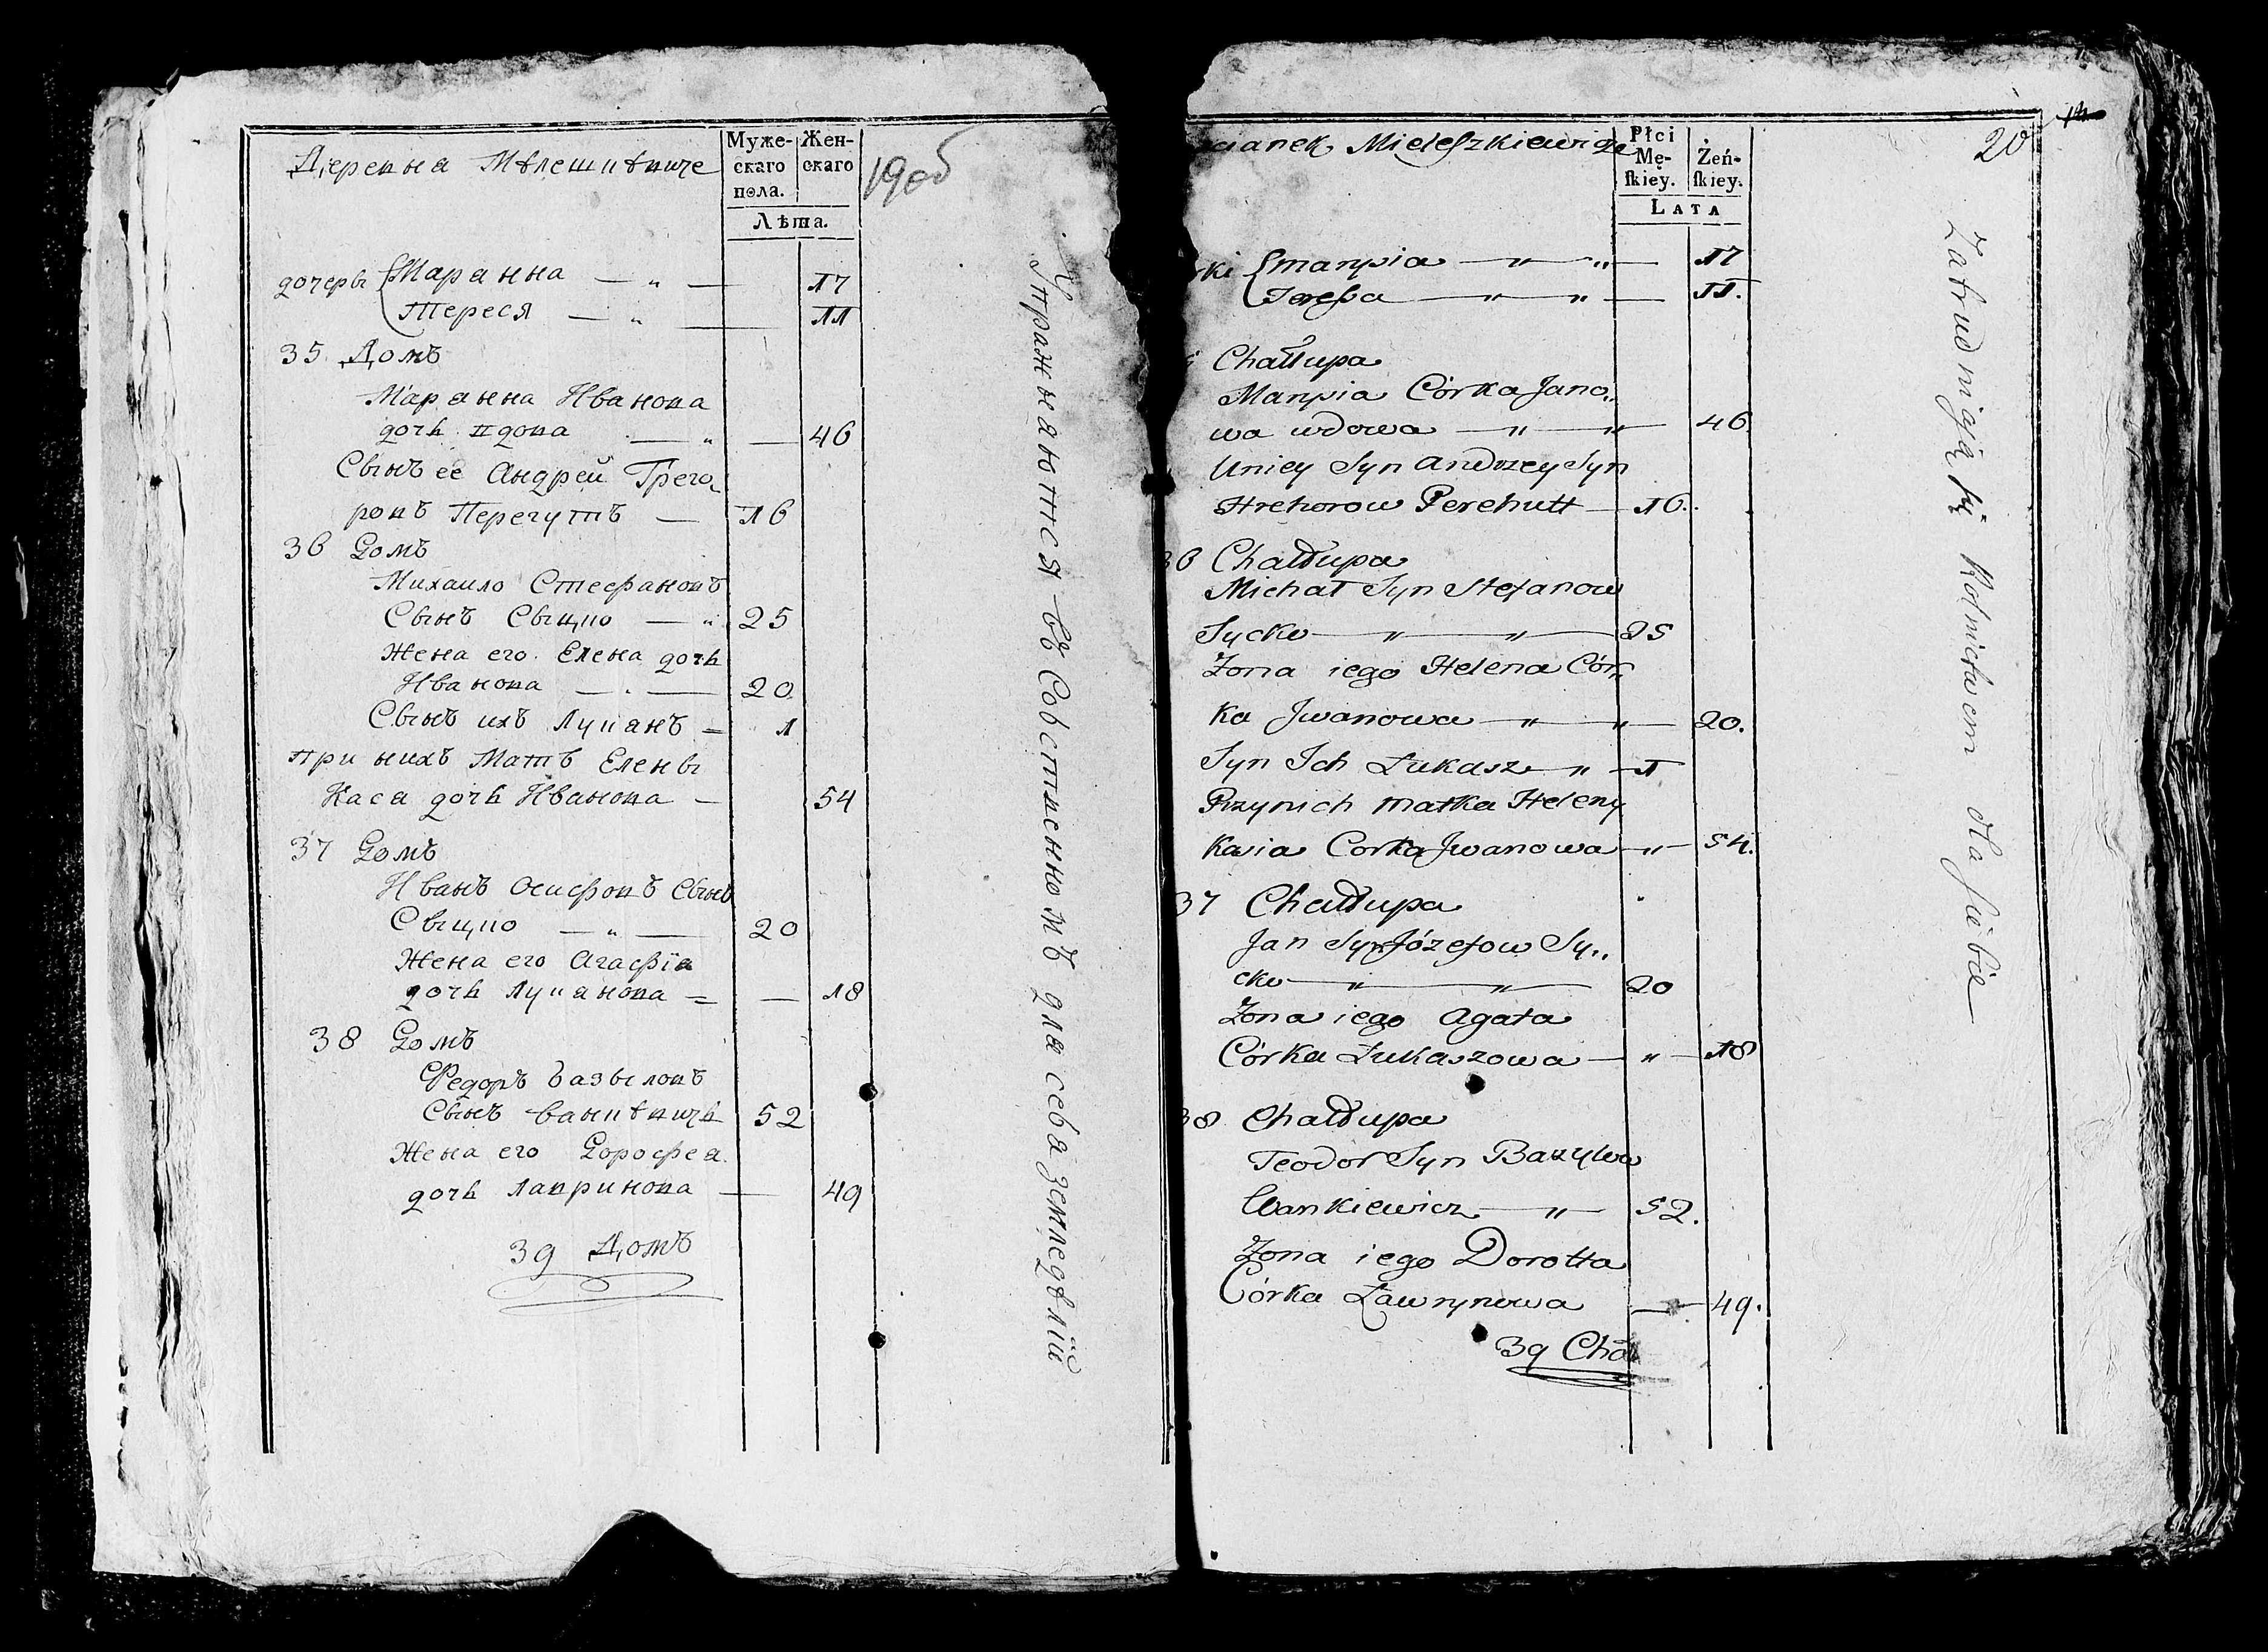 Деревна Мѣлешкѣвиче
Муже-
скаго
пола.
Жен-
скаго
Лѣта.
19 об
дочеры { Маранна — „ — 17
Тереся — „ — 11
35. Домъ
Маранна Ивано́ва
дочь вдова — „ — 46
Сынъ ее Андрей Грего„
ровъ Перегутъ — 16
36 Домъ
Михаило Стефановъ
Сынъ Сыцко — „ 25
Жена его Елена дочь
Иванова — . — 20.
Сынъ ихъ Луканъ — 1
при нихъ Матъ Елены
Кася дочь Иванова — 54
37 Домъ
Иванъ Осифовъ Сынъ
Сыцко — „ — 20
Жена его Агафїа
дочь Луканова = — 18
38 Домъ
Федоръ Базыловъ
Сынъ Ванкѣвичь 52
Жена его Дорофеа.
дочь Лавринова — 49
39 Домъ
Упражнаютсѧ въ Собственномъ для себа земледѣлїи
ianek Mieleszkiewicze
Płci
Mę-
ſkiey.
Żeń-
ſkiey.
LATA
20
rki { Maryia — „ — „ — 17
Teressa — „ — „ — 11.
Chałłupa
Maryia Córka Jano„
wa wdowa — „ — „ — 46
Uniey Syn Andrzey Syn
Hrehorow Perehutt — 16.
36 Chałłupa
Michał Syn Stefanow
Sycko — „ — „ — 25
Zona iego Helena Cór„
ka Jwanowa — „ — „ — 20.
Syn Ich Łukasz — „ — 1
Przynich matka Heleny
Kasia Corka Jwanowa — „ — 54.
37 Chałłupa
Jan Syn Józefow Sy„
cko — „ — „ — 20
Zona iego Agata
Córka Łukaszowa — „ — 18
38 Chałłupa
Teodor Syn Bazylow
Wankiewicz — „ — 52.
Zona iego Dorotta
Córka Ławrynowa — 49.
39 Cha
Zatrudniaią się Rolnictwem dla siebie